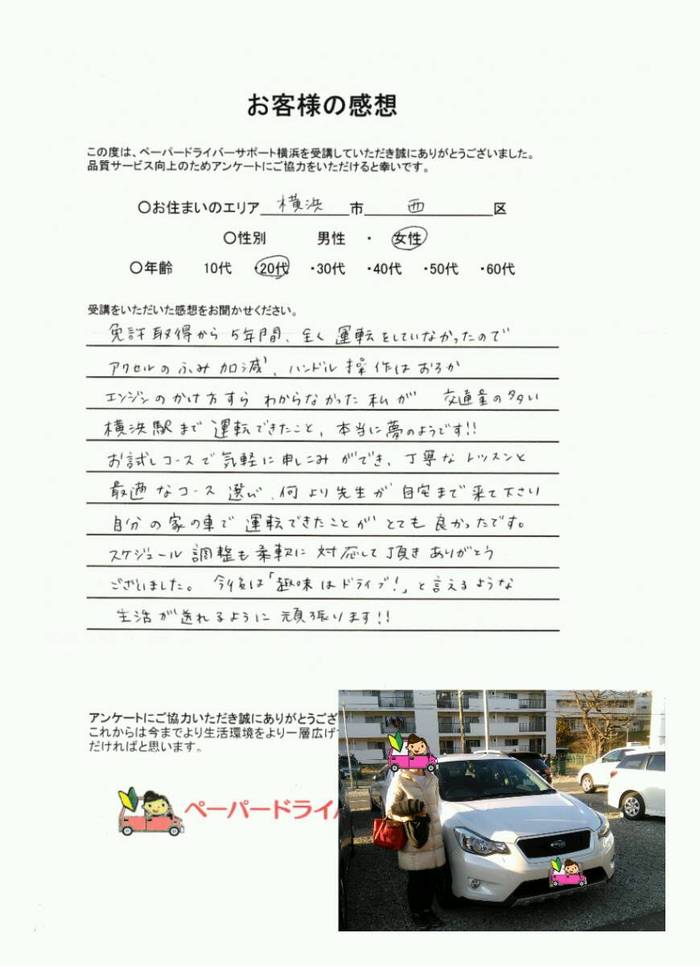 お客様の感想
この度は、ペーパードライバーサポート横浜を受講していただき誠にありがとうございました。
品質サービス向上のためアンケートにご協力をいただけると幸いです。
〇お住まいのエリア 横浜 市 西 区
〇性別 男性 ・ 女性
〇年齢 10代 ・20代 ・30代 ・40代 ・50代 ・60代
受講をいただいた感想をお聞かせください。
免許取得から5年間、全く運転をしていなかったので
アクセルのふみ加減、ハンドル操作はおろか
エンジンのかけ方すらわからなかった私が 交通量の多い
横浜駅まで運転できたこと、本当に夢のようです!!
お試しコースで気軽に申しこみができ、丁寧なレッスンと
最適なコース選び、何より先生が自宅まで来て下さい
自分の家の車で運転できたことがとても良かったです。
スケジュール調整も柔軟に対応して頂きありがとう
ございました。今後は「趣味はドライブ!」と言えるような
生活が送れるように頑張ります!!
アンケートにご協力いただき誠にありがとうござ
これからは今までより生活環境をより一層広げ
だければと思います。
ペーパードライバ